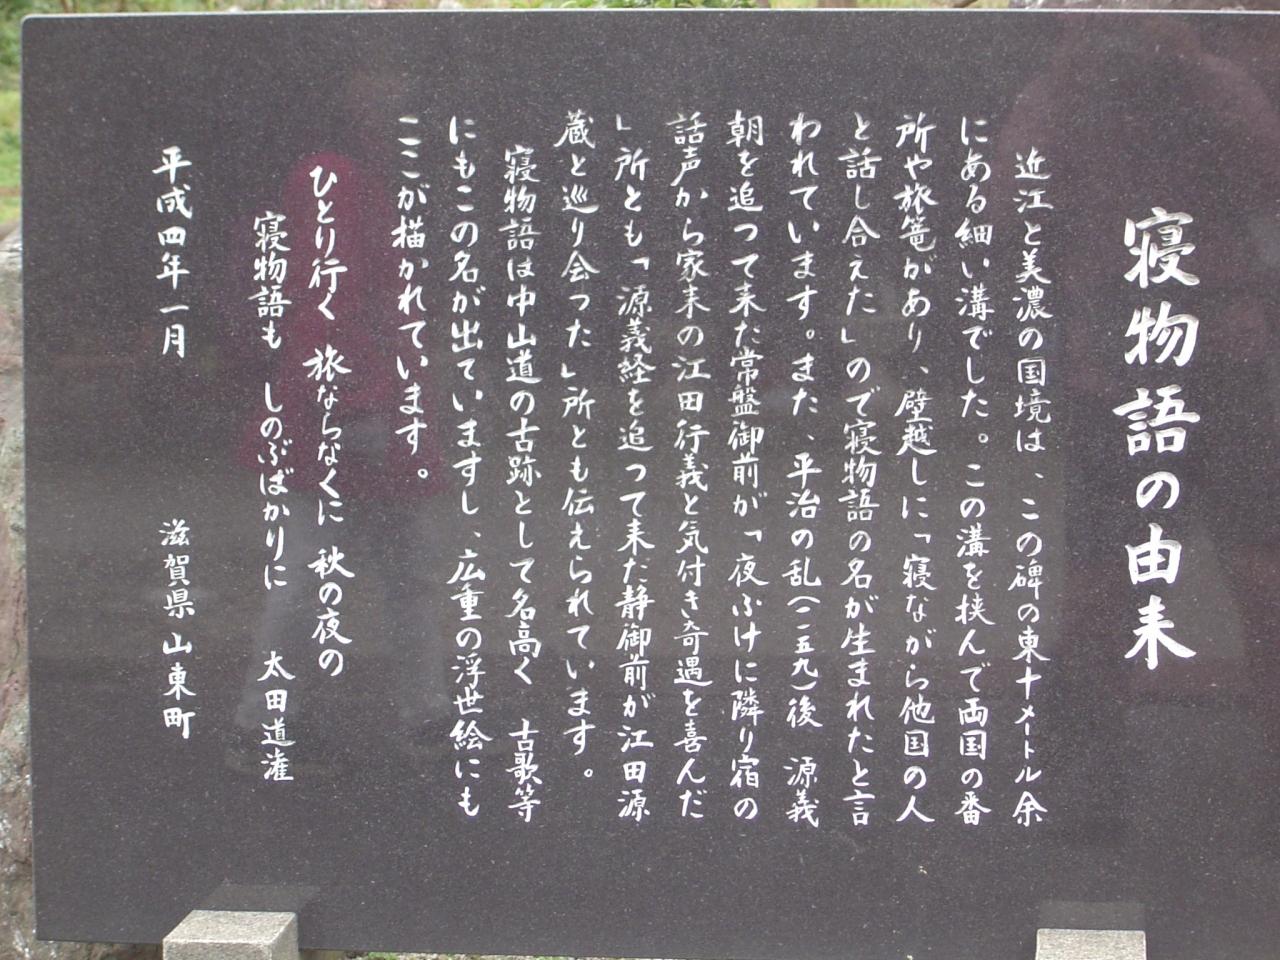 寝物語の由来
近江と美濃の国境は、この碑の東十メートル余
にある細い溝でした。この溝を挟んで両国の番
所や旅篭があり、壁越しに「寝ながら他国の人
と話し合えた」ので寝物語の名が生まれたと言
われています。また、平治の乱(一一五九)後 源義
朝を追って来た常盤御前が「夜ふけに隣り宿の
話声から家来の江田行義と気付き奇遇を喜んだ
」所とも「源義経を追って来た静御前が江田源
蔵と巡り会った」所とも伝えられています。
寝物語は中山道の古跡として名高く 古歌等
にもこの名が出ていますし、広重の浮世絵にも
ここが描かれています。
ひとり行く 旅ならなくに 秋の夜の
寝物語も しのぶばかりに 太田道潅
平成四年一月 滋賀県山東町